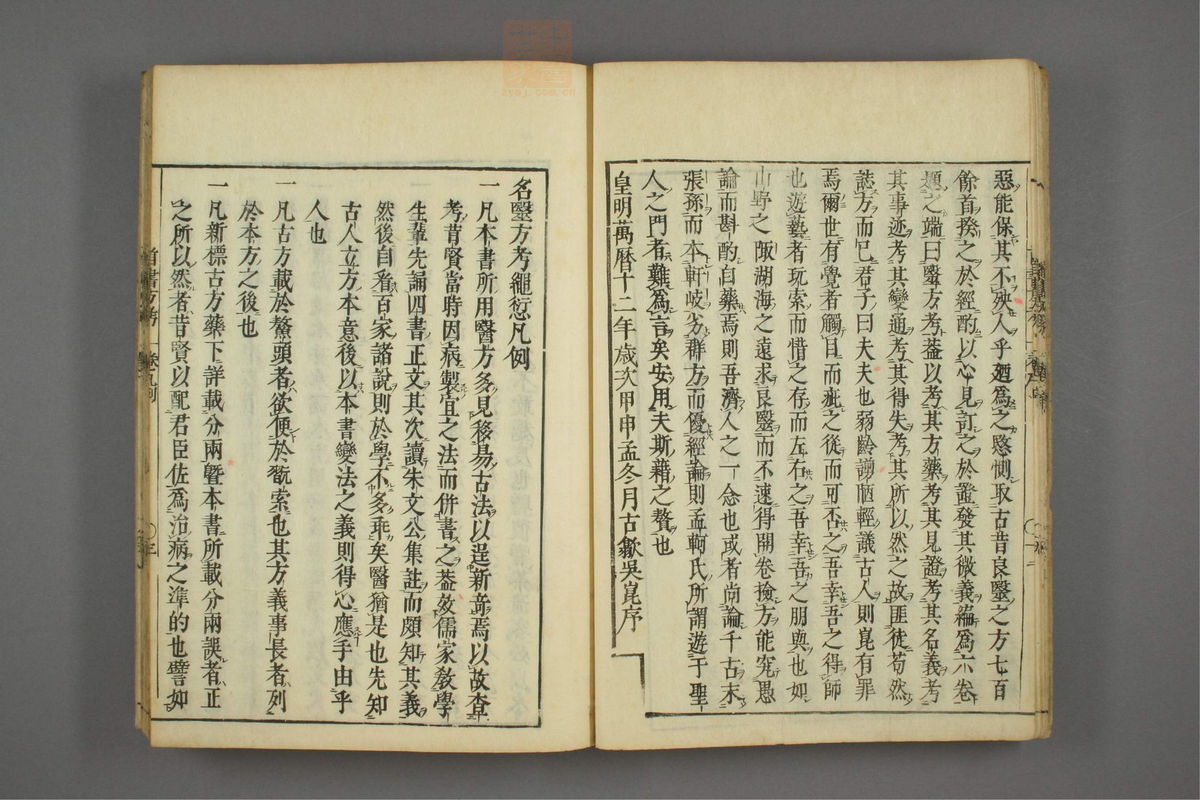 惡能保其不殃人乎廻爲之愍惻取古昔良毉之方七百
餘首揆之於經酌以心見訂之於證發其微義編爲六卷
題之端曰毉方考葢以考其方藥考其見證考其名義考
其事迹考其變通考其得失考其所以然之故匪徒苟然
誌方而已君子曰夫夫也弱齡謭陋輕議古人則崑有罪
焉爾世有覺者觸目而疵之從而可否之吾幸吾之得師
也遊藝者玩索而惜之存而左右之吾幸吾之朋與也如
山野之陬湖海之遠求良毉而不速得開卷撿方能究愚
論而斟酌自藥焉則吾濟人之一念也或者尚論千古末
張孫而本軒岐劣群方而優經論則孟軻氏所謂遊于聖
人之門者難爲言矣安用夫斯藉之贅也
皇明萬曆十二年歲次甲申孟冬月古歙吳崑序
名毉方考繩愆凡例
一凡本書所用醫方多見移易古法以逞新竒焉以故查
考昔賢當時因病製宜之法而併書之葢效儒家教學
生輩先論四書正文其次讀朱文公集註而頗知其義
然後自看百家諸說則於學不多乖矣醫猶是也先知
古人立方本意後以本書變法之義則得心應手由乎
人也
一凡古方載於鰲頭者欲便於翫索也其方義事長者列
於本方之後也
一凡新標古方藥下詳載分兩曁本書所載分兩誤者正
之所以然者昔賢以配君臣佐爲治病之準的也譬如
首書方考
卷凡例